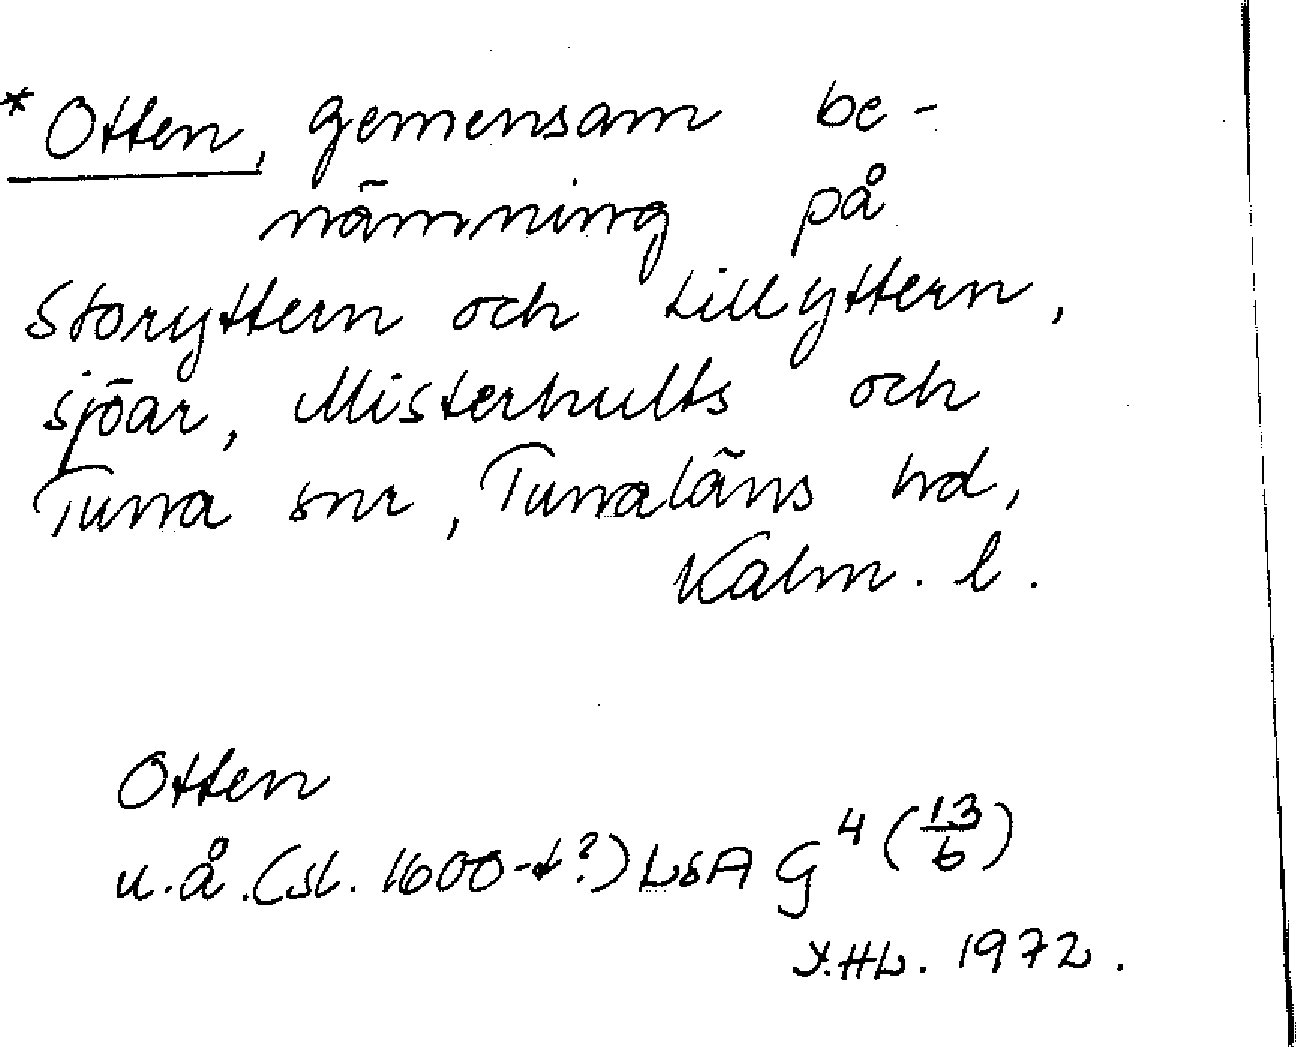 *Otten, gemensam be-
nämning på
Storyttern och Lillyttern,
sjöar, Misterhults och
Tuna snr, Tunaläns hd,
Kalm. l.
Otten
u.å. (sl. 1600-t?) LSA G⁴ (13/6)
Y.HL. 1972.